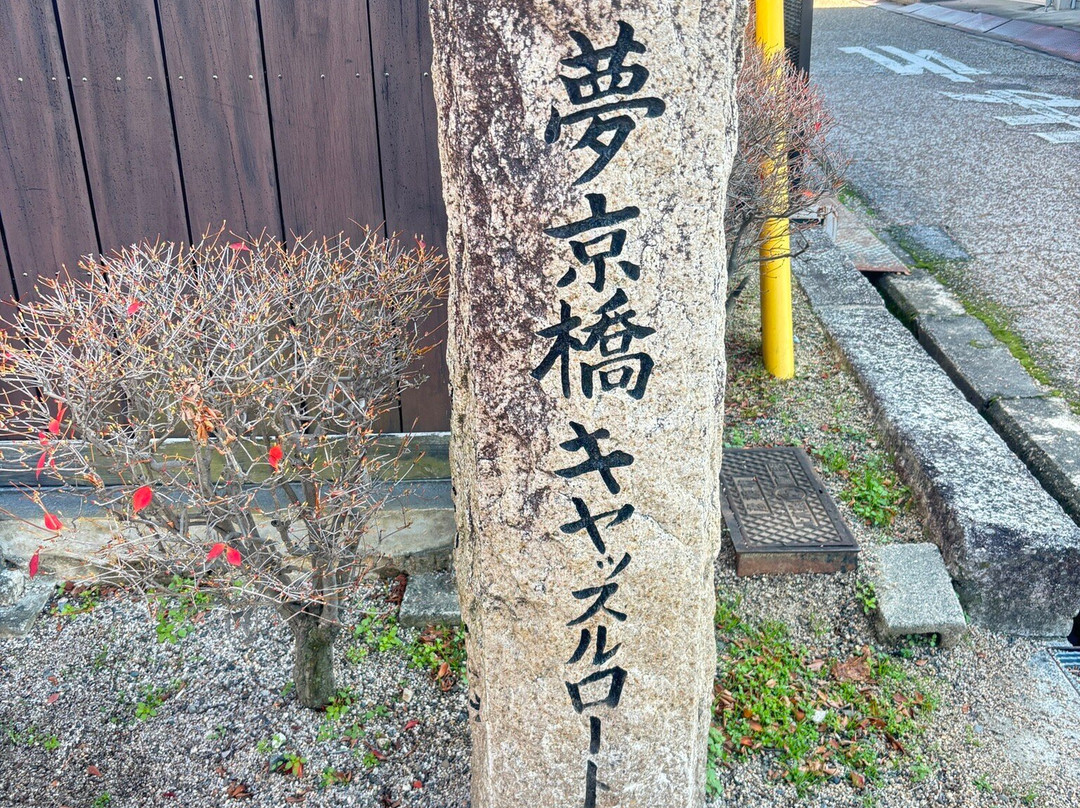 夢京橋キャッスルロート